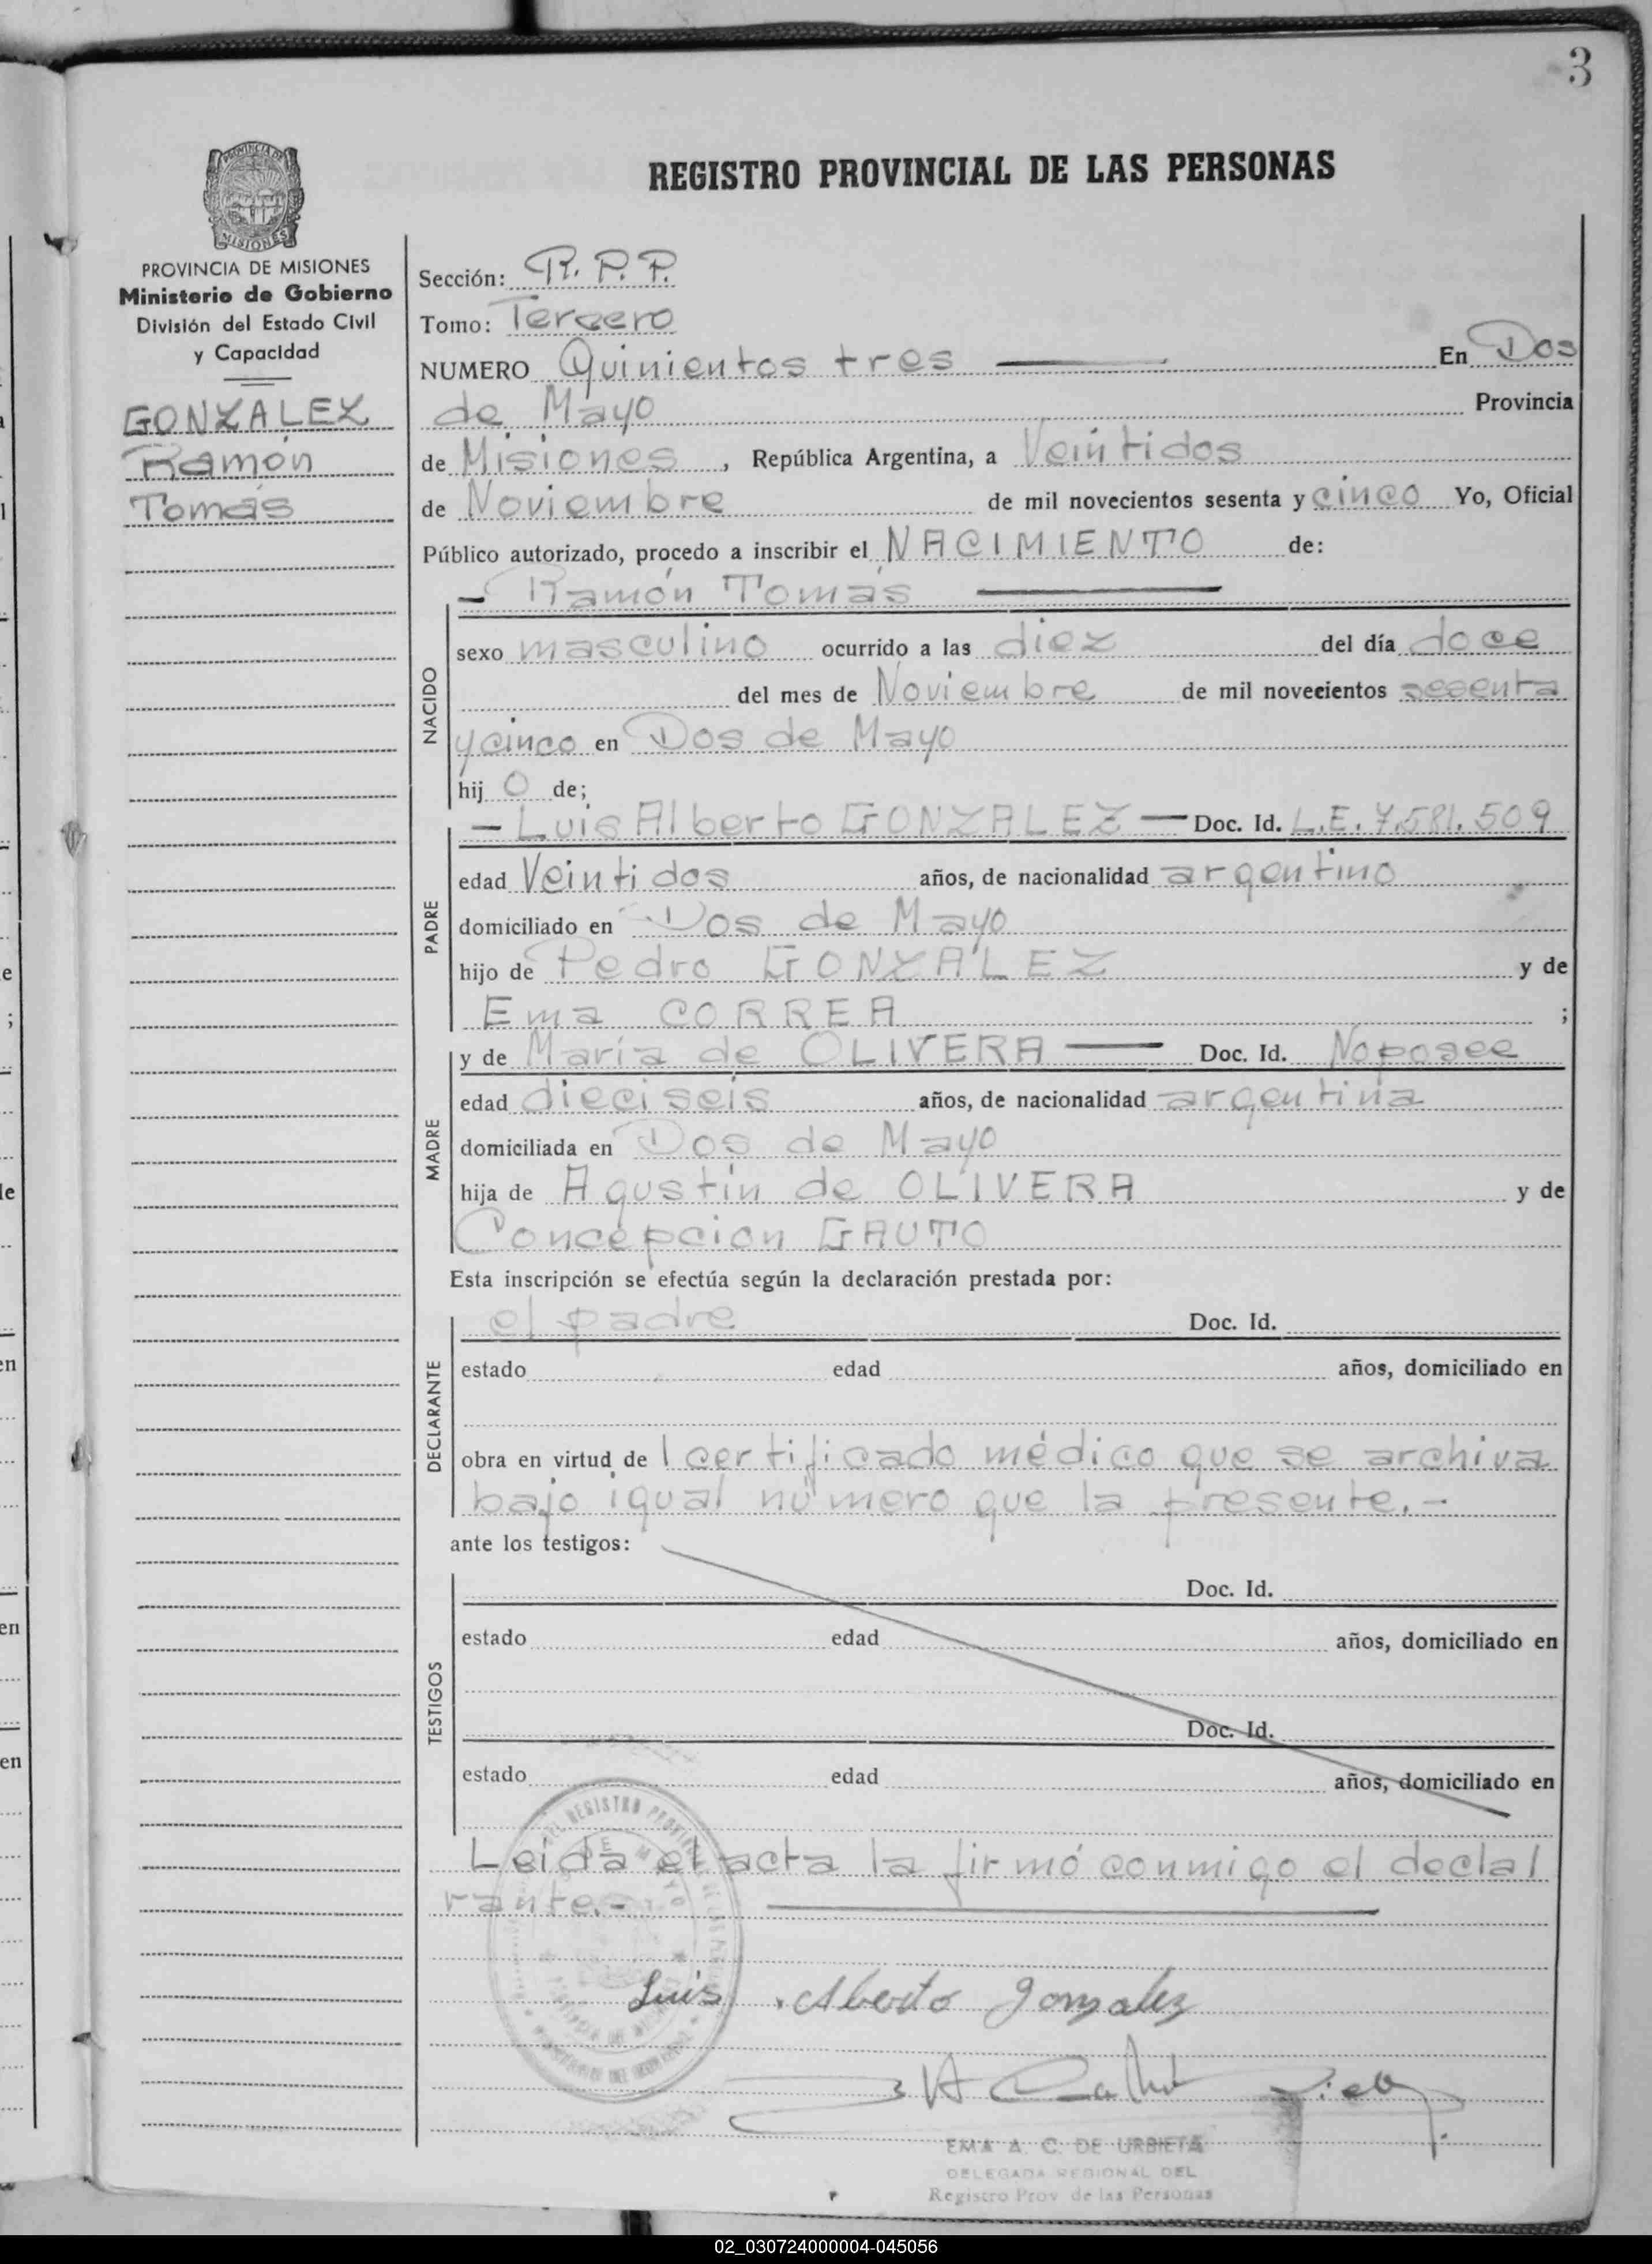 3
REGISTRO PROVINCIAL DE LAS PERSONAS
PROVINCIA DE
MISIONES
PROVINCIA DE MISIONES
Ministerio de Gobierno
División del Estado Civil
y Capacidad
GONZALEZ
Ramón
Tomás
Sección: R. P. P.
Tomo: Tercero
NUMERO Quinientos tres En Dos
de Mayo Provincia
de Misiones, República Argentina, a Veintidos
de Noviembre de mil novecientos sesenta y cinco Yo, Oficial
Público autorizado, procedo a inscribir el NACIMIENTO de:
NACIDO
- Ramón Tomás
sexo masculino ocurrido a las diez del día doce
del mes de Noviembre de mil novecientos sesenta
y cinco en Dos de Mayo
hij o de;
PADRE
- Luis Alberto GONZALEZ - Doc. Id. L.E. 7.581.509
edad Veintidos años, de nacionalidad argentino
domiciliado en Dos de Mayo
hijo de Pedro GONZALEZ y de
Ema CORREA ;
MADRE
y de María de OLIVERA Doc. Id. No posee
edad dieciseis años, de nacionalidad argentina
domiciliada en Dos de Mayo
hija de Agustín de OLIVERA y de
Concepcion GAUTO
Esta inscripción se efectúa según la declaración prestada por:
DECLARANTE
el padre Doc. Id.
estado edad años, domiciliado en
obra en virtud de l certificado médico que se archiva
bajo igual número que la presente.-
ante los testigos:
TESTIGOS
Doc. Id.
estado edad años, domiciliado en
Doc. Id.
estado edad años, domiciliado en
Leída el acta la firmó conmigo el decla/
rante.-
Luis Alberto Gonzalez
EMA A. C. DE URBIETA
DELEGADA REGIONAL DEL
Registro Prov de las Personas
02_030724000004-045056